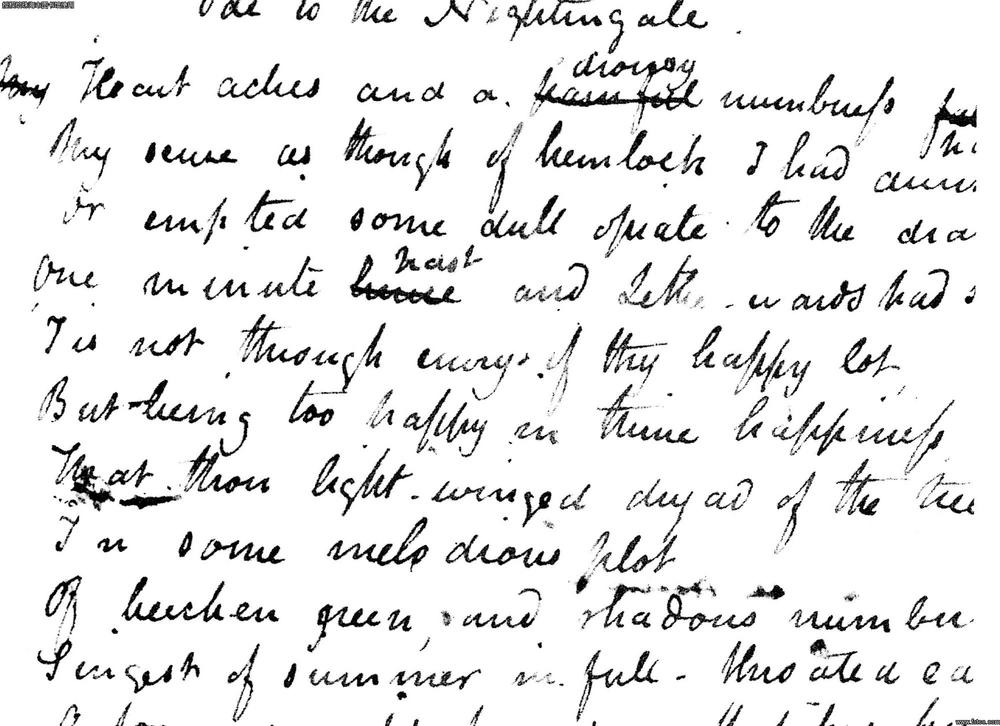 Ode to the Nightingale
drowsy
My Heart aches and a painful numbness
My sense as though of hemlock I had
Or empted some dull opiate to the dra
past
One minute hence and Lethe-wards had s
Tis not through envy of thy happy lot,
But being too happy in thine happiness
That thou light-winged dryad of the tree
In some melodious plot
Of beechen green, and shadows number
Singest of summer in full-throated ea
www.fotoe.com